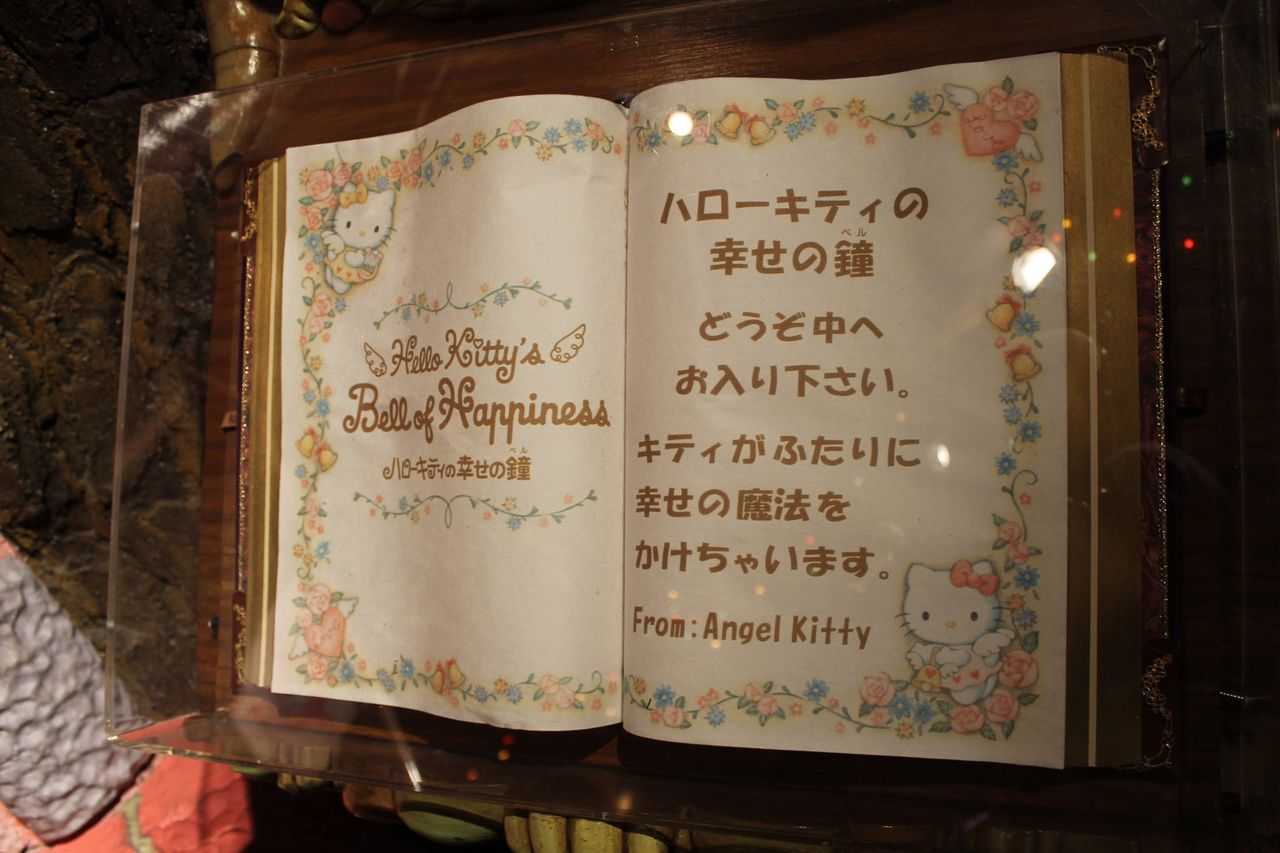 Hello Kitty's
Bell of Happiness
ハローキティの幸せの鐘
ベル
ハローキティの
幸せの鐘
ベル
どうぞ中へ
お入り下さい。
キティがふたりに
幸せの魔法を
かけちゃいます。
From:Angel Kitty